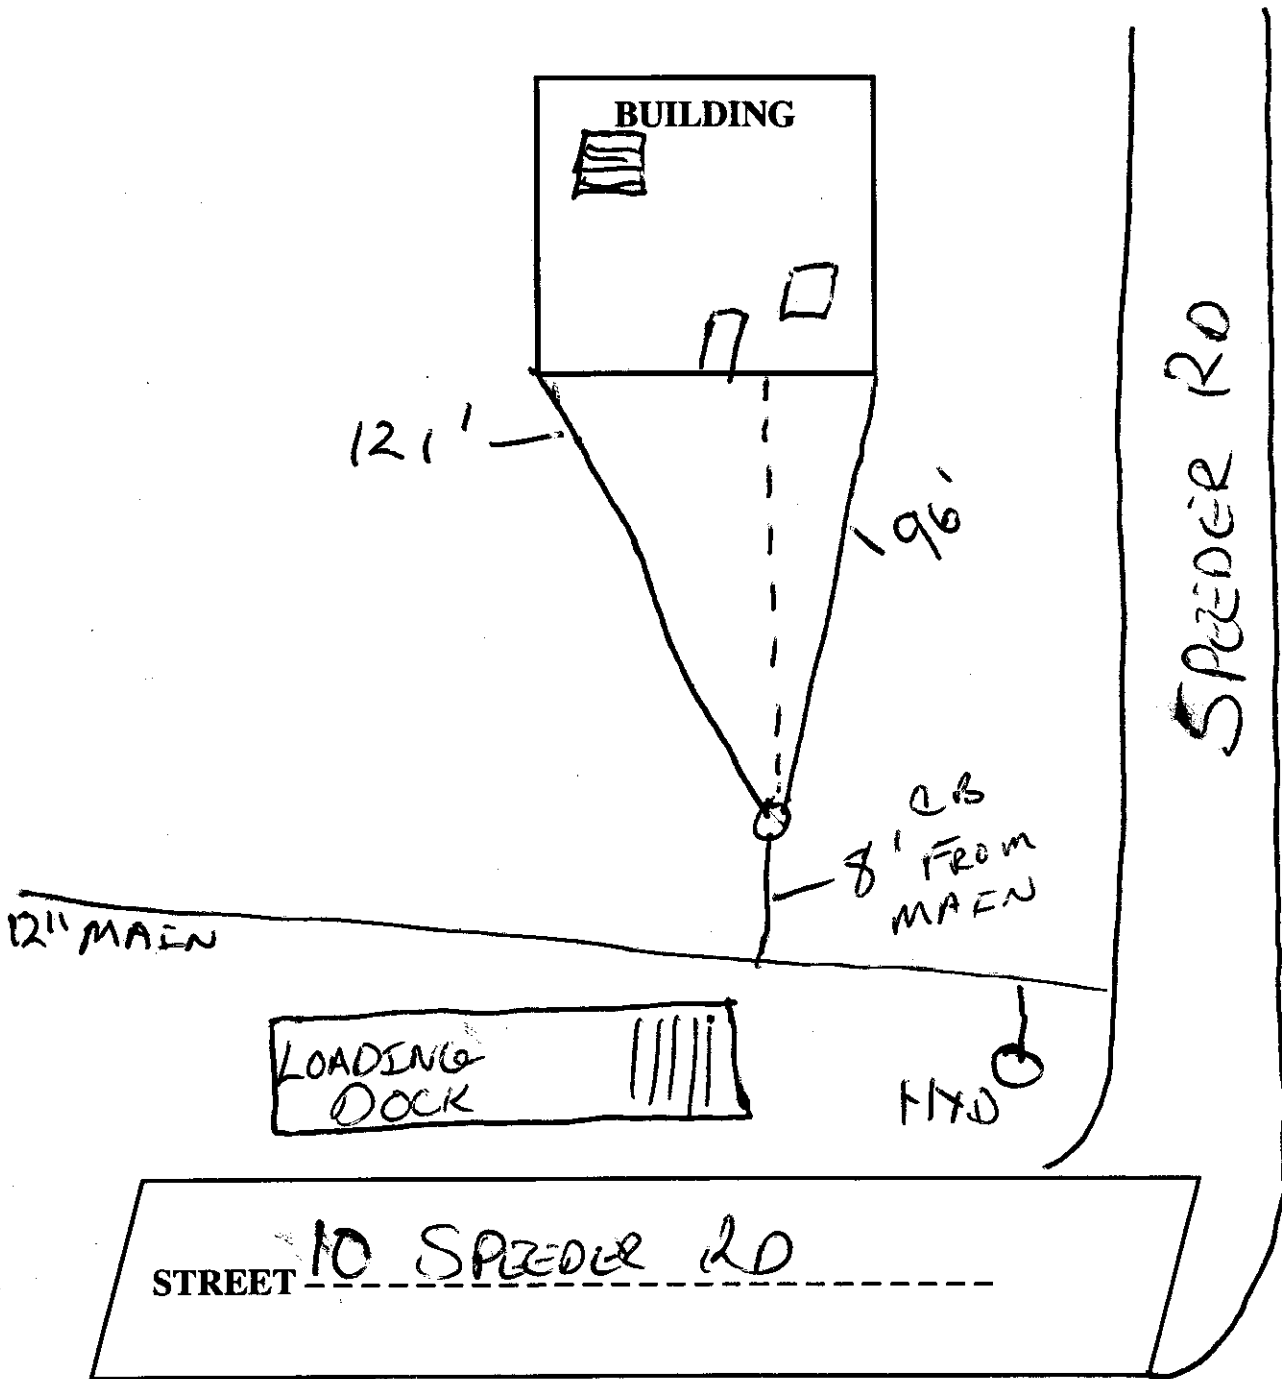 BUILDING
121'
96'
SPEEDER RD
CB
8' FROM
MAIN
12" MAIN
LOADING
DOCK
HYD
STREET 10 SPEEDER RD